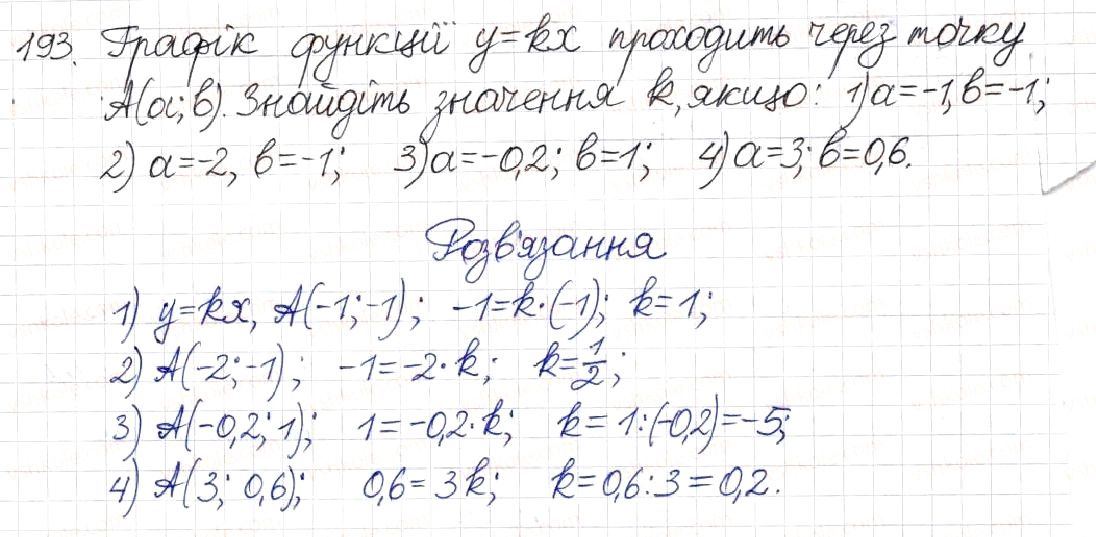 193. Графік функції y=kx проходить через точку
A(a;b). Знайдіть значення k, якщо: 1) a=-1, b=-1;
2) a=-2, b=-1; 3) a=-0,2; b=1; 4) a=3; b=0,6.
Розв'язання
1) y=kx, A(-1;-1); -1=k·(-1); k=1;
2) A(-2;-1); -1=-2·k; k=1/2;
3) A(-0,2;1); 1=-0,2·k; k=1:(-0,2)=-5;
4) A(3; 0,6); 0,6=3k; k=0,6:3=0,2.